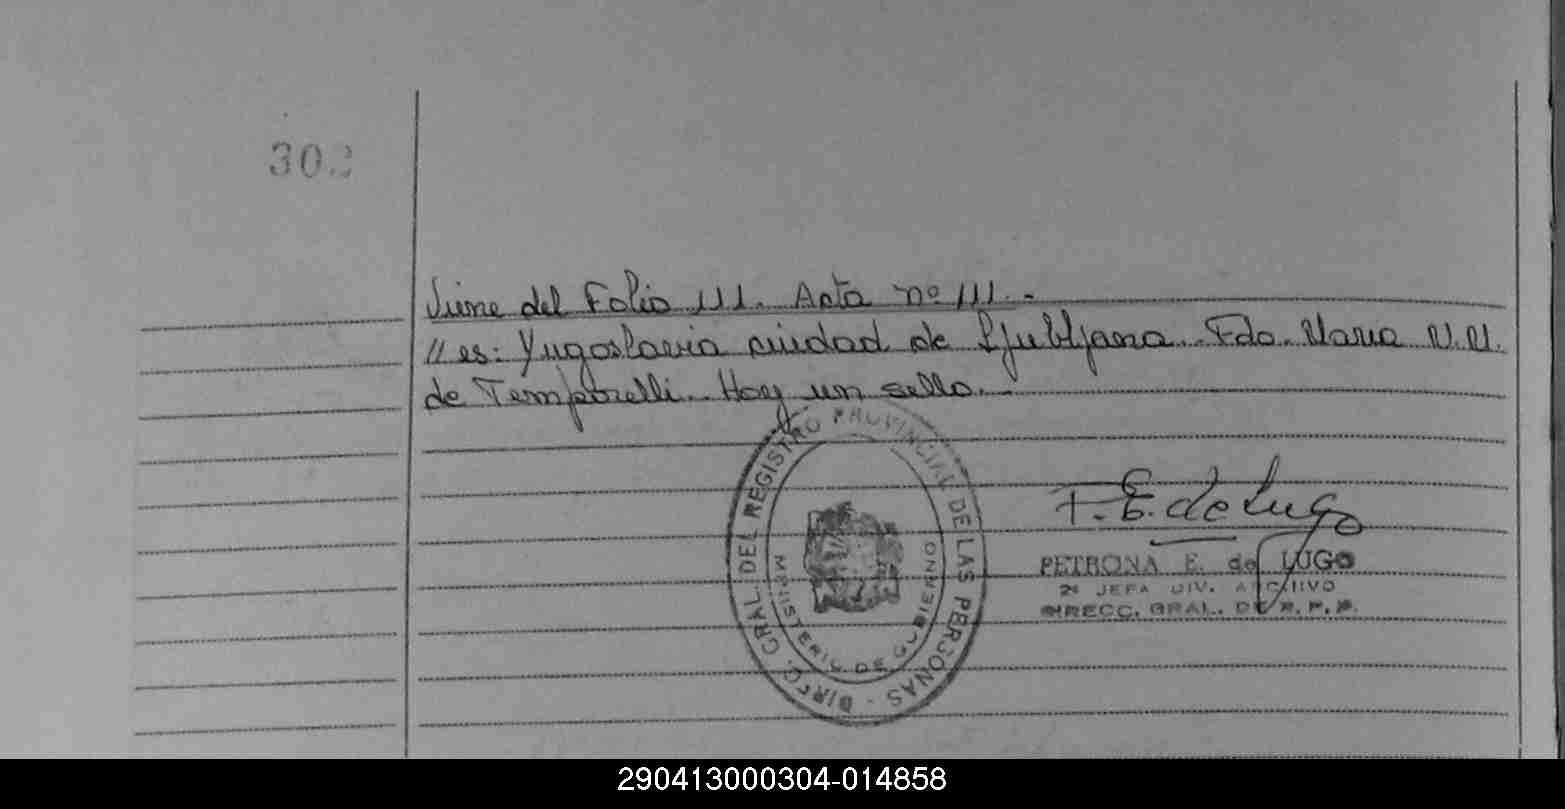 302
Viene del Folio 111. Acta nº 111.-
//es: Yugoslavia ciudad de Ljubljana.. Fdo. Maria V. V.
de Temporelli.. Hay un sello.-
DIREC. GRAL. DEL REGISTRO PROVINCIAL DE LAS PERSONAS -
MINISTERIO DE GOBIERNO
P. E. de Lugo
PETRONA E. de LUGO
2ª JEFA DIV. ARCHIVO
DIRECC. GRAL. DE R. P. P.
290413000304-014858